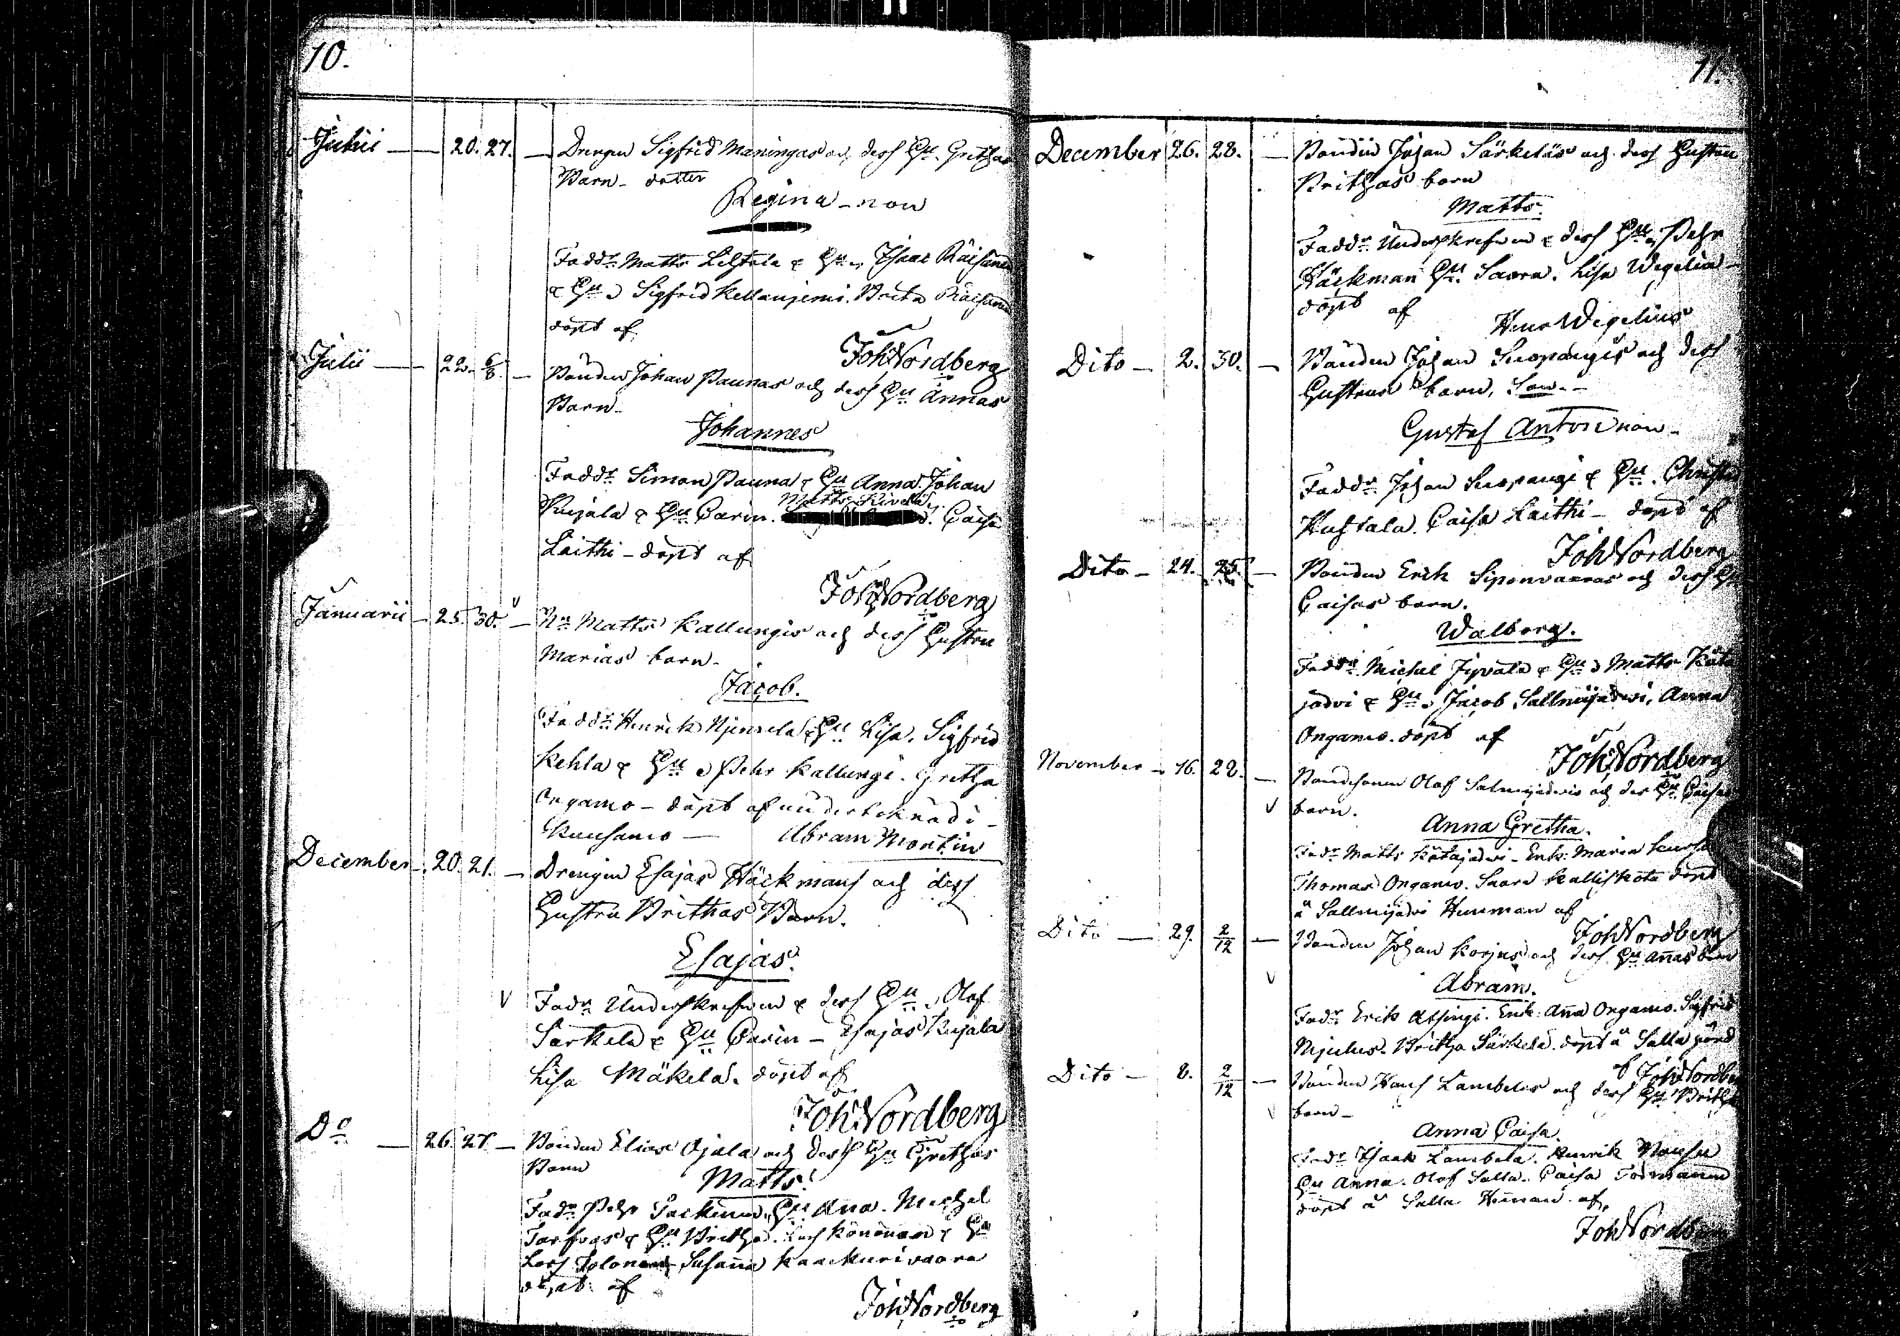 10.
Julii — 20. 27. — Drengen Sigfrid Maningas och dess Hu. Grethas
Barn - dotter
Regina - non
Faddr. Matts Lehtola & Hu., Isaac Räisänen
& Hu., Sigfrid Kellanjemi. Brita Räisänen
döpt af
Joh Nordberg
Julii — 22. 6/8. — Bonden Johan Paunas och dess Hu. Annas
Barn -
Johannes
Faddr. Simon Pauna & Hu. Anna. Johan
Kujala & Hu. Carin. Matts Caisa
Laithi - döpt af
Joh Nordberg
Januarii - 25. 30. — Nb. Matts Kallungis och dess Hustru
Marias barn -
Jacob.
Faddr. Henrik & Hu. Lisa. Sigfrid
Kehla & Hu., Pehr Kallungi. Gretha
Ongamo - döpt af underteknad i
Kuusamo — Abram Montin
December - 20. 21. — Drengen Esajas Häckmans och dess
Hustru Brithas Barn.
Esajas.
Fadr. Underskrefven & dess Hu., Olof
Särkelä & Hu. Carin - Esajas Kujala
Lisa Mäkelä. döpt af
Joh Nordberg
Do — 26. 27. — Bonden Elias Ojala och dess Hu. Grethas
Barn
Matts.
Fadr. Pehr Hu. Ana. Michel
& Hu. Britha. Lars Könönen & Hu
Lars Susana Kaackurivaara
döpt af
Joh Nordberg
11.
December 26. 28. — Bonden Johan Särkeläs och dess Hustru
Brithas barn
Matts.
Faddr. Underskrefven & dess Hu., Pehr
Häckman Hu. Saara. Lisa Wegelia -
döpt af
Henr Wegelius
Dito - 2. 30. — Bonden Johan Suopangis och dess
Hustrus barn, Son. -
Gustaf Anton non -
Faddr. Johan Suopangi & Hu. Christin
Caisa Laithi - döpt af
Joh Nordberg
Dito - 24. 25. — Bonden Erik Siponvaaras och dess Hu
Caisas barn.
Walborg.
Faddr. Michel & Hu., Matts Käta
jädvi & Hu., Jacob Sallmijadvi, Anna
Ongamo. döpt af
Joh Nordberg
November - 16. 28. — Bondesonen Olof Salmijadvis och des Hu. Caisas
barn.
Anna Gretha.
Fadr. Matts Kätajadvi - Enk: Maria
Thomas Ongamo. Saara Kalliskota döpt
å Sallmijadvi Hemman af
Joh Nordberg
Dito — 29. 2/12 — Bonden Johan Korjus och dess Hu. Annas barn
Abram.
Fadr. Erik Enk: Ana Ongamo. Sigfrid
Mjulus. Britha Särkelä. döpt å Salla gård
af Joh Nordberg
Dito - 8. 2/12 — Bonden Hans Lambelas och dess Hu. Brithas
barn -
Anna Caisa.
Fadr. Isaak Lambela. Henrik
Hu Anna. Olof Salla. Caisa Tormänen
döpt å Salla Heman. af,
Joh Nordberg